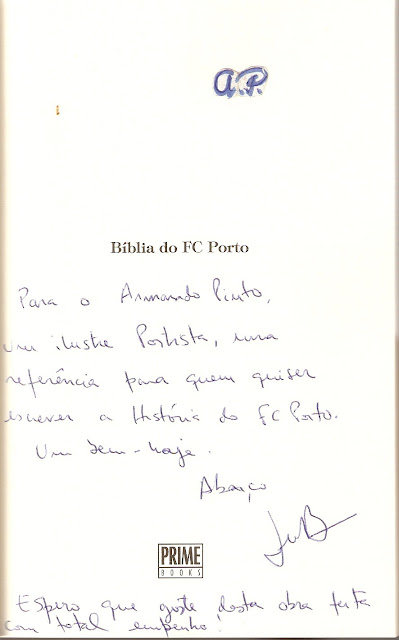 a.P.
Bíblia do FC Porto
Para o Armando Pinto,
um ilustre Portista, uma
referência para quem quiser
escrever a História do FC Porto.
Um bem-haja.
Abraço
PRIME
BOOKS
Espero que goste desta obra feita
com total empenho!